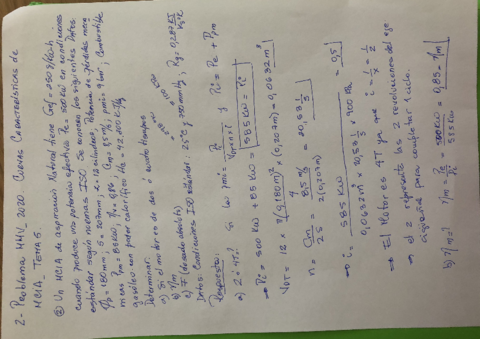 2- Problema MHV_2020 CURVAS CARACTERÍSTICAS DE
MCIA_ TEMA 5.
② UN MCIA de aspiración Natural tiene Gef = 250 g/kWh
cuando produce una potencia efectiva Pe = 500 kW en condiciones
estándar según normas ISO. Se conocen los siguientes Datos
D = 180 mm; S = 207 mm; z = 12 cilindros, Potencia de pérdidas mecá
nicas Ppm = 85 kW, = 0,86, Cm = 8,5 m/s; pmi = 9 bar, Combustible
gasóleo con poder calorífico Hc = 42.000 kJ/kg
Determinar:
a) Si el motor es de dos o cuatro tiempos
b) ηm
c) F (dosado absoluto)
Datos: Condiciones ISO estándar: 25°C y 750 mmHg, Rg = 0,287 kJ/kg·K
Respuesta:
a) 2 ó 4T? Si (1) pmi = Pi / VDT·n·i y Pi = Pe + Ppm
→ Pi = 500 kW + 85 kW = 585 kW = Pi
VDT = 12 × π/4 (0,180m)² × (0,207m) = 0,0632 m³
n = Cm / 2S = 8,5 m/s / 2(0,207m) = 20,53 1/s
→ i = 585 kW / 0,0632 m³ × 20,53 1/s × 900 kPa = 0,5
⇒ El Motor es 4T ya que i = 1/2
→ el 2 representa las 2 revoluciones del eje
cigüeñal para completar 1 ciclo.
b) ηm = ? ηm = Pe/Pi = 500 kW / 585 kW = 0,85 = ηm